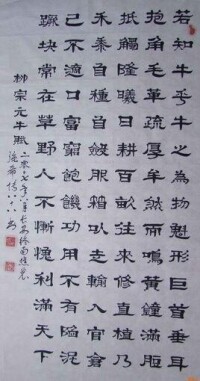 若知牛乎牛之為物魁形巨首垂耳
抱角毛革疏厚牟然而鳴黃鐘滿脰
抵觸隆曦日耕百畝往來修直植乃
禾黍自種自斂服箱以走輸入官倉
己不適口富窮飽饑功用不有陷泥
蹶塊常在草野人不慚愧利滿天下
柳宗元牛賦